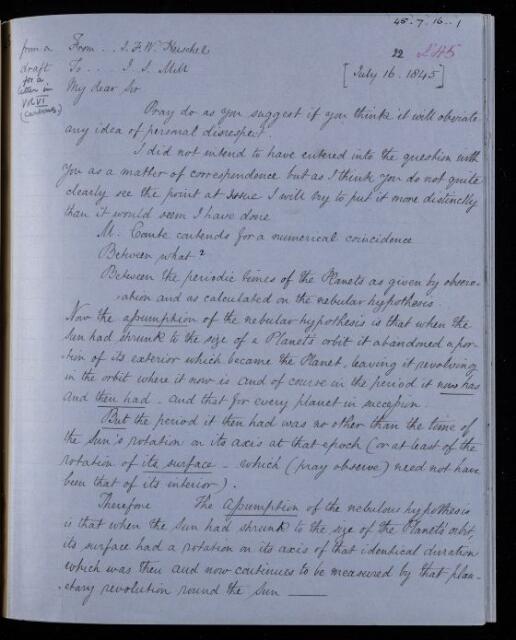 45.7.16..1
22 245
from a
draft
for a
letter in
Vol VI
(contents)
From .. J. F. W. Herschel
To .... J. S. Mill
[July 16. 1845]
My dear Sir
Pray do as you suggest if you think it will obviate
any idea of personal disrespect.
I did not intend to have entered into the question with
you as a matter of correspondence but as I think you do not quite
clearly see the point at issue I will try to put it more distinctly
than it would seem I have done
M. Comte contends for a numerical coincidence
Between what?
Between the periodic times of the Planets as given by observ-
-ation and as calculated on the nebular hypothesis.
Now the assumption of the nebular hypothesis is that when the
Sun had shrunk to the size of a Planet's orbit it abandoned a por-
-tion of its exterior which became the Planet, leaving it revolving
in the orbit where it now is and of course in the period it now has
and then had - and that for every planet in succession.
But the period it then had was no other than the time of
the Sun's rotation on its axis at that epoch (or at least of the
rotation of its surface - which (pray observe) need not have
been that of its interior).
Therefore The assumption of the nebulous hypothesis
is that when the Sun had shrunk to the size of the Planet's orbit,
its surface had a rotation on its axis of that identical duration
which was then and now continues to be measured by that plan-
-etary revolution round the Sun ——